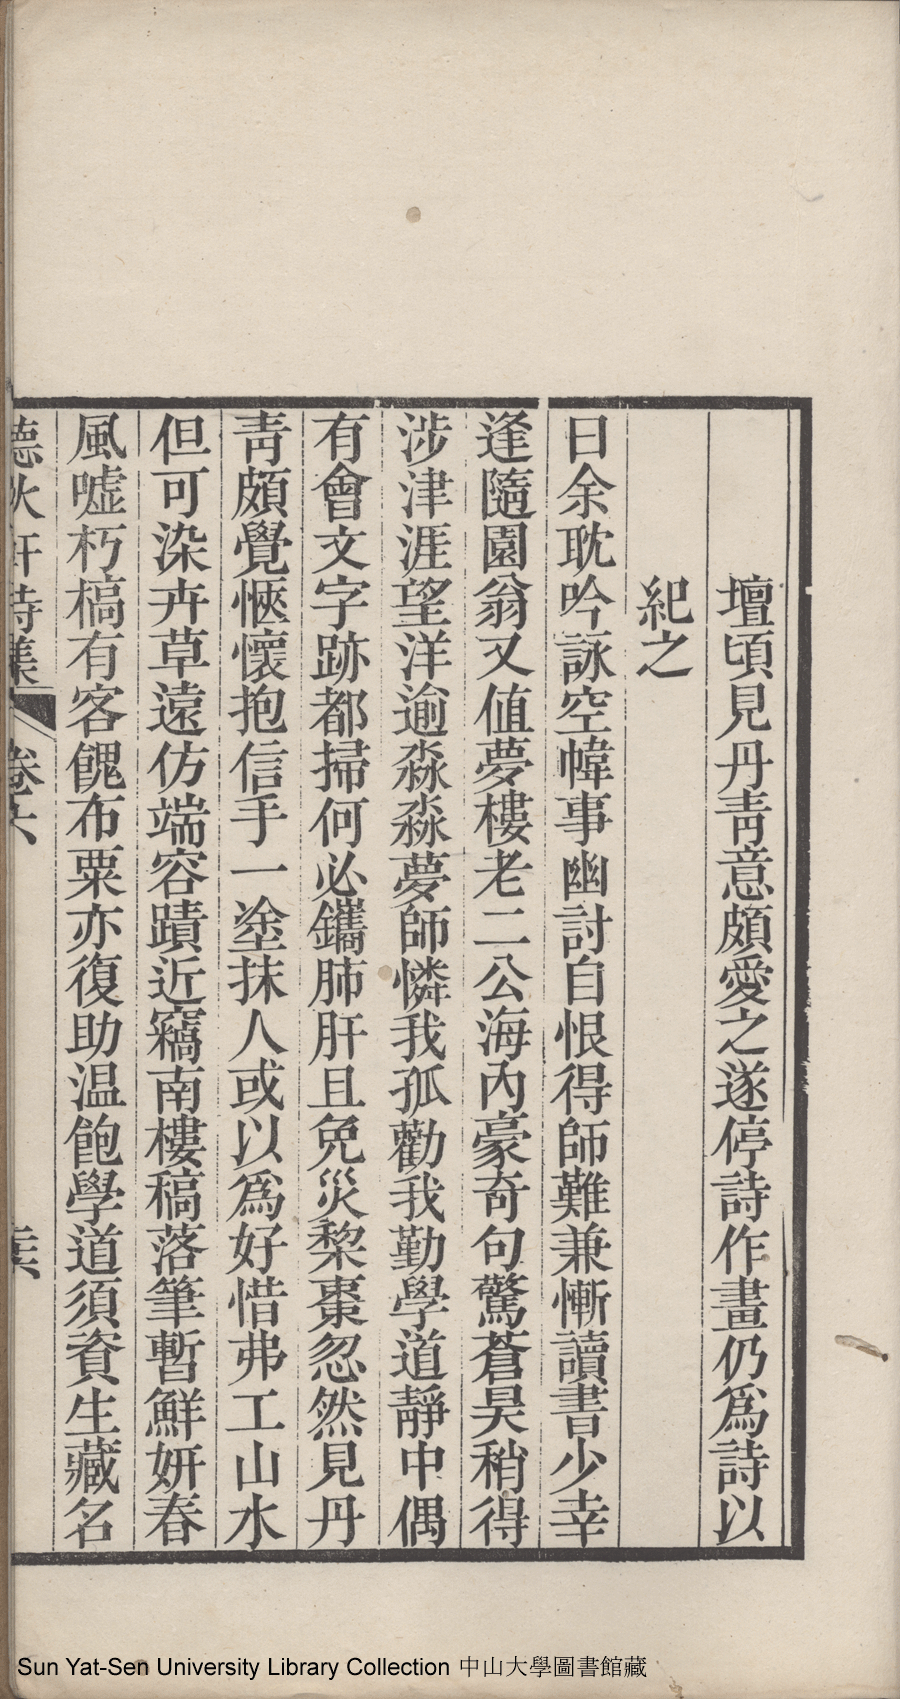 壇頃見丹靑意頗愛之遂停詩作畫仍爲詩以
紀之
日余耽吟詠空幃事幽討自恨得師難兼慚讀書少幸
逢隨園翁又值夢樓老二公海內豪奇句驚蒼昊稍得
涉津涯望洋逾淼淼夢師憐我孤勸我勤學道靜中偶
有會文字跡都掃何必鑴肺肝且免災黎棗忽然見丹
靑頗覺愜懷抱信手一塗抹人或以爲好惜弗工山水
但可染卉草遠仿端容蹟近竊南樓稿落筆暫鮮妍春
風嘘朽槁有客餽布粟亦復助温飽學道須資生藏名
聽秋軒詩集 卷六
Sun Yat-Sen University Library Collection 中山大學圖書館藏